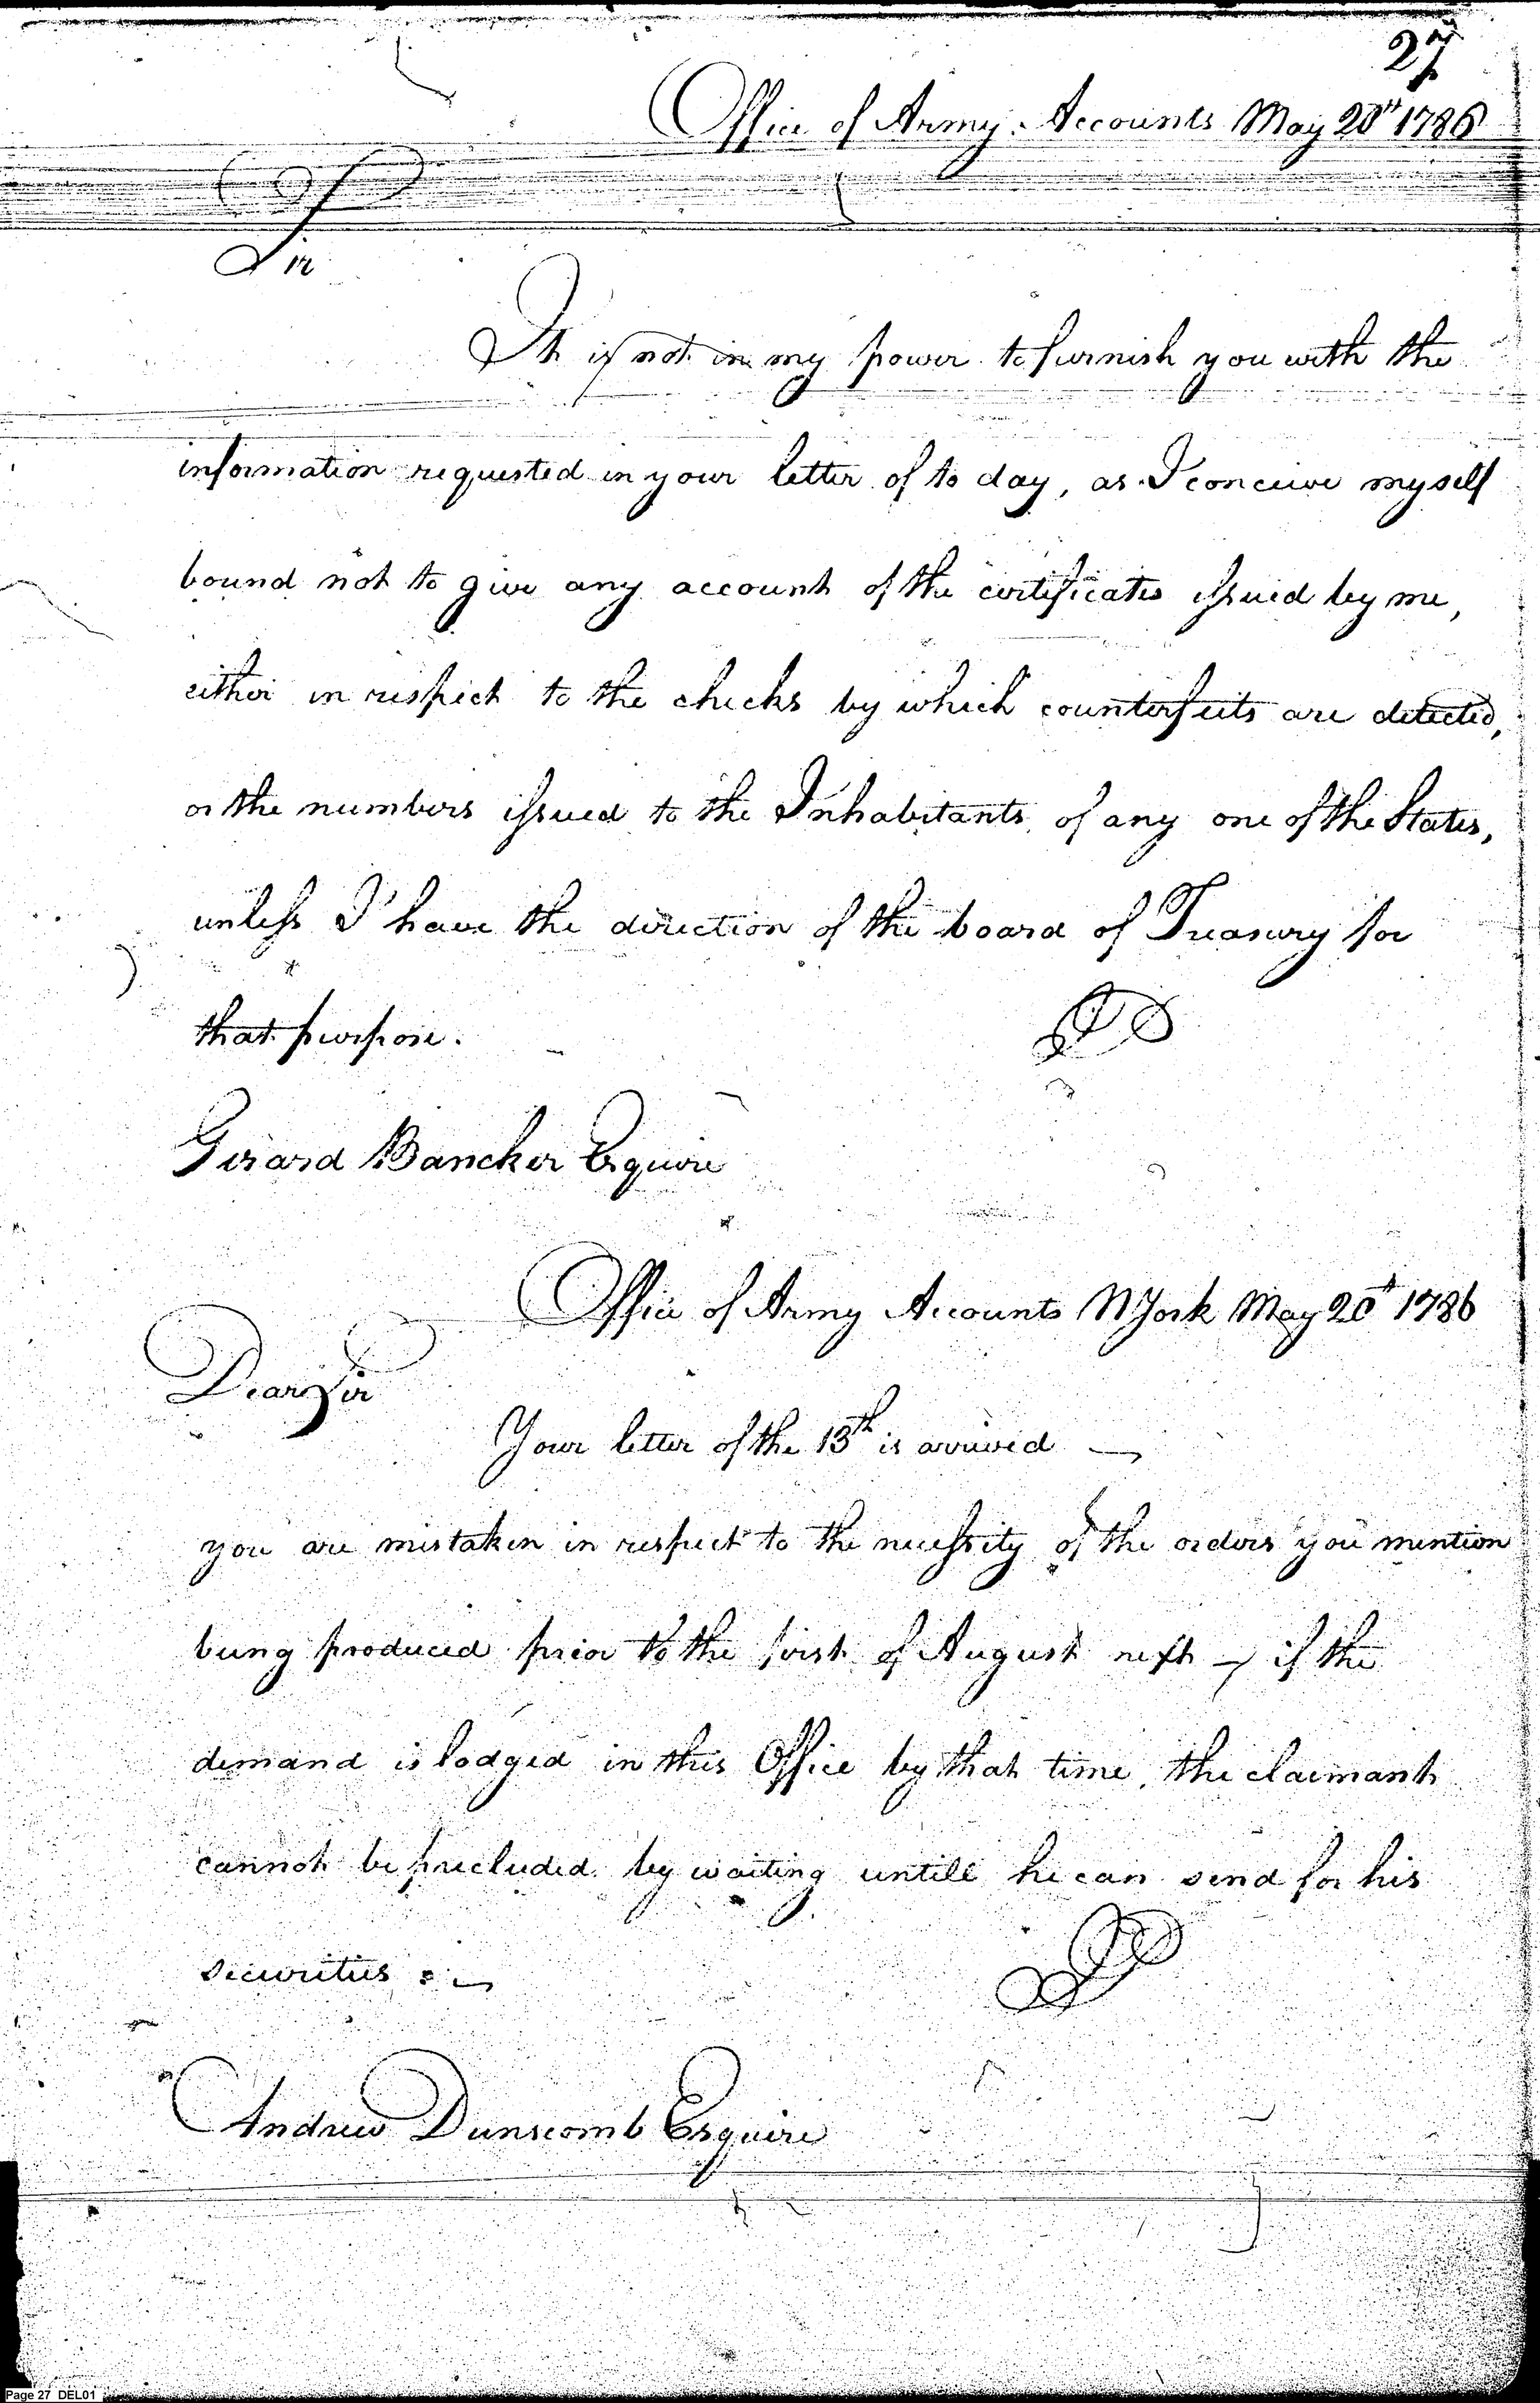 27
Office of Army Accounts May 20th 1786
Sir
It is not in my power to furnish you with the
information requested in your letter of to day, as I conceive myself
bound not to give any account of the certificates issued by me,
either in respect to the checks by which counterfeits are detected,
or the numbers issued to the Inhabitants of any one of the States,
unless I have the direction of the board of Treasury for
that purpose.
Gerard Bancker Esquire
Office of Army Accounts NYork May 20th 1786
Dear Sir
Your letter of the 13th is arrived —
you are mistaken in respect to the necessity of the orders you mention
being produced prior to the first of August next — if the
demand is lodged in this Office by that time, the claimant
cannot be precluded by waiting untill he can send for his
securities : —
Andrew Dunscomb Esquire
Page 27 DEL01